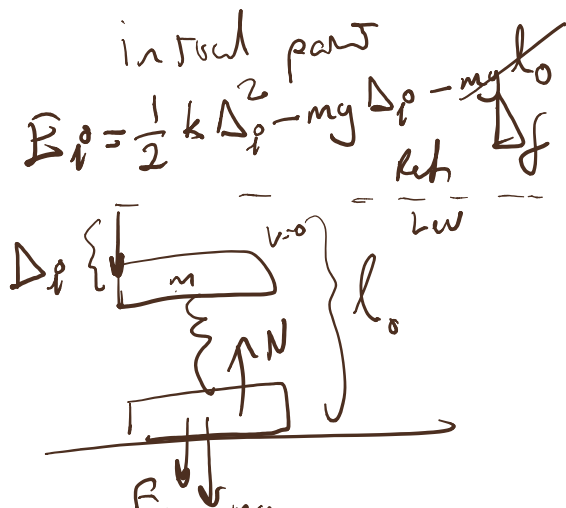 initial part
E_i = 1/2 k Δ_i^2 - mg Δ_i - mg l_0
Δ_f
Ref
Lev
Δ_i
v=0
m
l_0
N